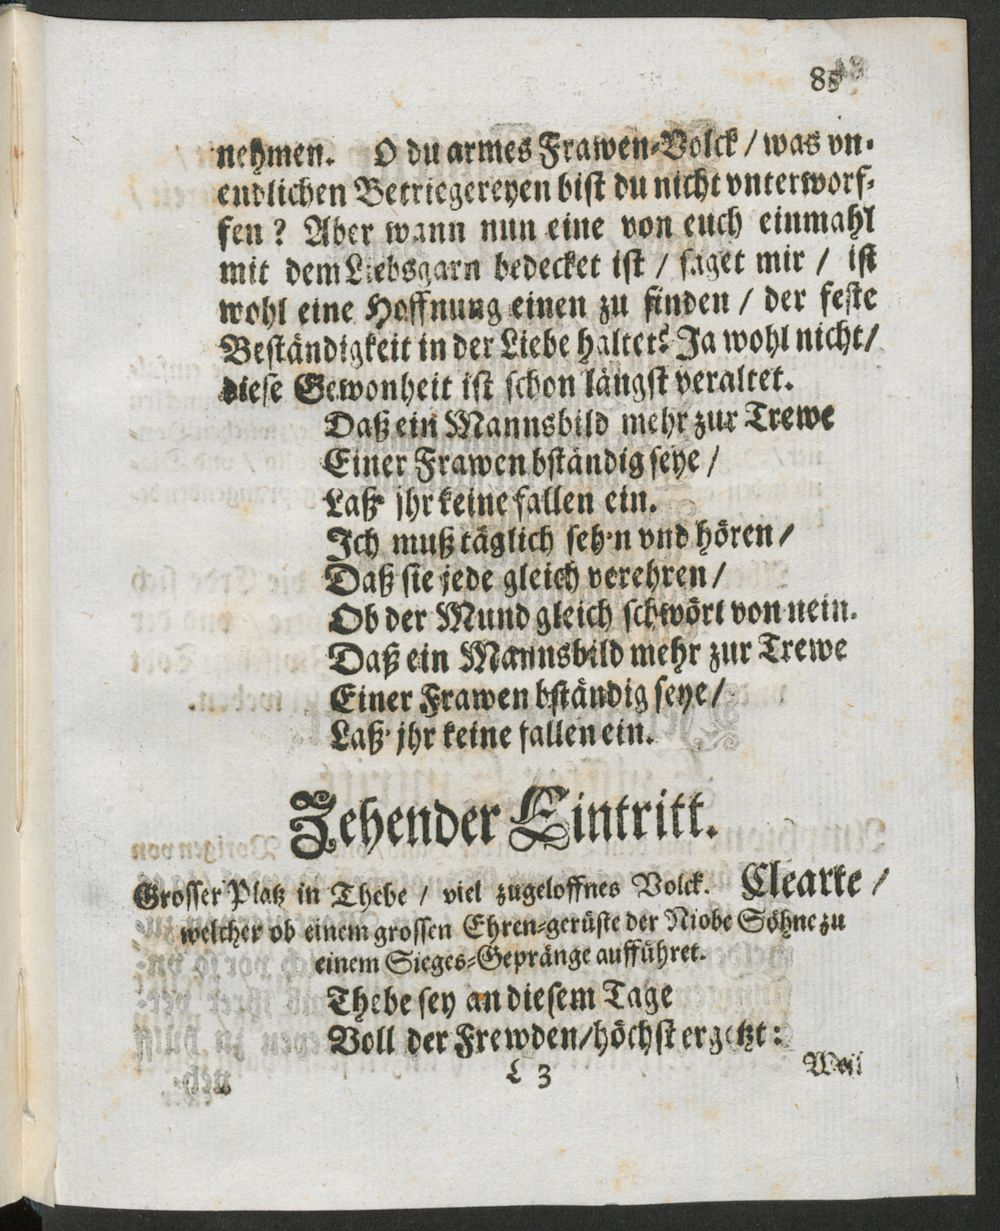 85
nehmen. O du armes Frawen-Volck / was vn-
endlichen Betriegereyen bist du nicht vnterworf-
fen ? Aber wann nun eine von euch einmahl
mit dem Liebsgarn bedecket ist / saget mir / ist
wohl eine Hoffnung einen zu finden / der feste
Beständigkeit in der Liebe haltet? Ja wohl nicht /
diese Gewonheit ist schon längst veraltet.
Daß ein Mannsbild mehr zur Trewe
Einer Frawen bständig seye /
Laß' jhr keine fallen ein.
Ich muß täglich seh'n vnd hören /
Daß sie jede gleich verehren /
Ob der Mund gleich schwört von nein.
Daß ein Mannsbild mehr zur Trewe
Einer Frawen bständig seye /
Laß' jhr keine fallen ein.
Zehender Eintritt.
Grosser Platz in Thebe / viel zugeloffnes Volck. Clearte /
welcher ob einem grossen Ehren-gerüste der Niobe Söhne zu
einem Sieges-Gepränge aufführet.
Thebe sey an diesem Tage
Voll der Frewden / höchst ergetzt :
L 3 Weil